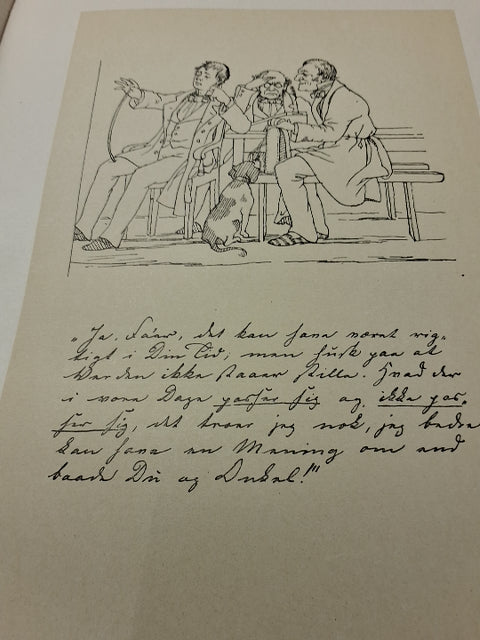 „Ja, Fáer, det kan have været rig-
tigt i Din Tid; men husk paa at
Verden ikke staaer stille. Hvad der
i vore Dage passer sig og ikke pas-
ser sig, det troer jeg nok, jeg bedre
kan have en Mening om end
baade Du og Onkel!"